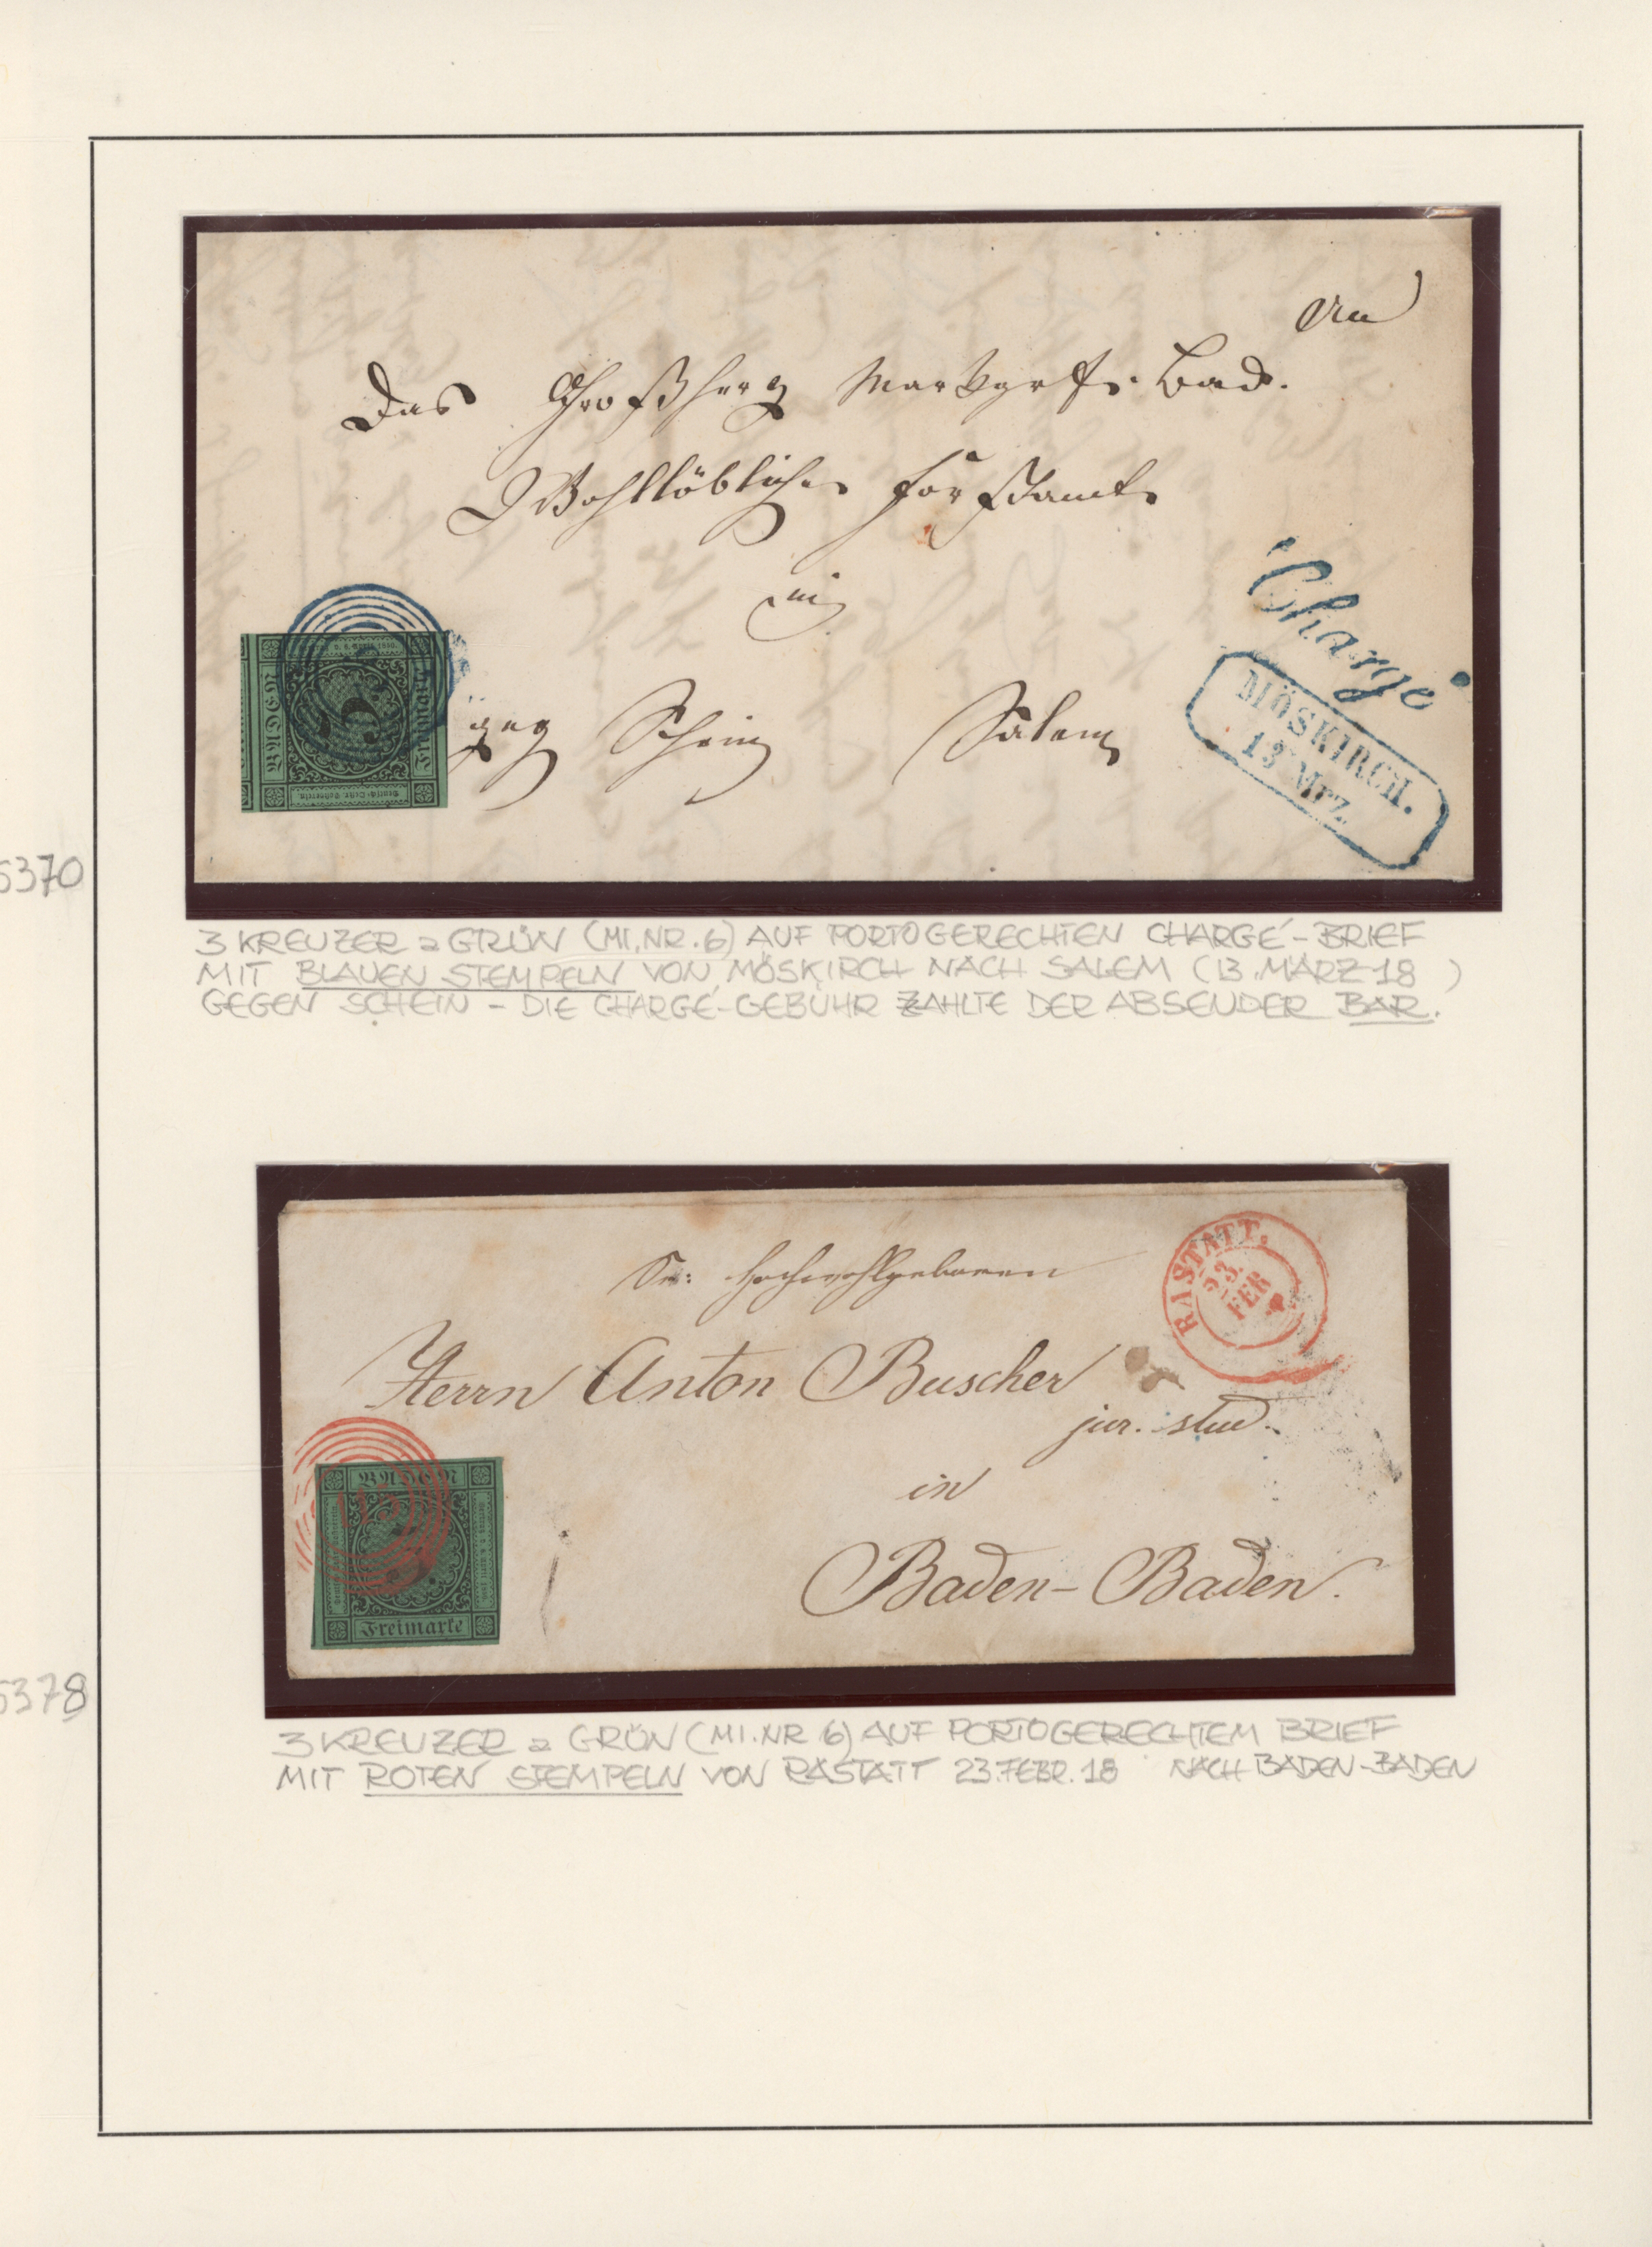 An
Das Großherz Markgrfs. Bad.
Wohllöbliche Forstamt
in
geg Schein Salem
Chargé
MÖSKIRCH.
13 Mrz.
BADEN
Freimarke
3
5370
3 KREUZER a GRÜN (MI.NR. 6) AUF PORTOGERECHTEN CHARGÉ-BRIEF
MIT BLAUEN STEMPELN VON MÖSKIRCH NACH SALEM (13. MÄRZ 18 )
GEGEN SCHEIN - DIE CHARGÉ-GEBÜHR ZAHLTE DER ABSENDER BAR.
RASTATT.
23.
FEB
Sr: Hochwohlgeboren
Herrn Anton Buscher
jur. stud.
in
Baden-Baden.
BADEN
115
Freimarke
5378
3 KREUZER a GRÜN (MI.NR 6) AUF PORTOGERECHTEM BRIEF
MIT ROTEN STEMPELN VON RASTATT 23.FEBR. 18 NACH BADEN-BADEN